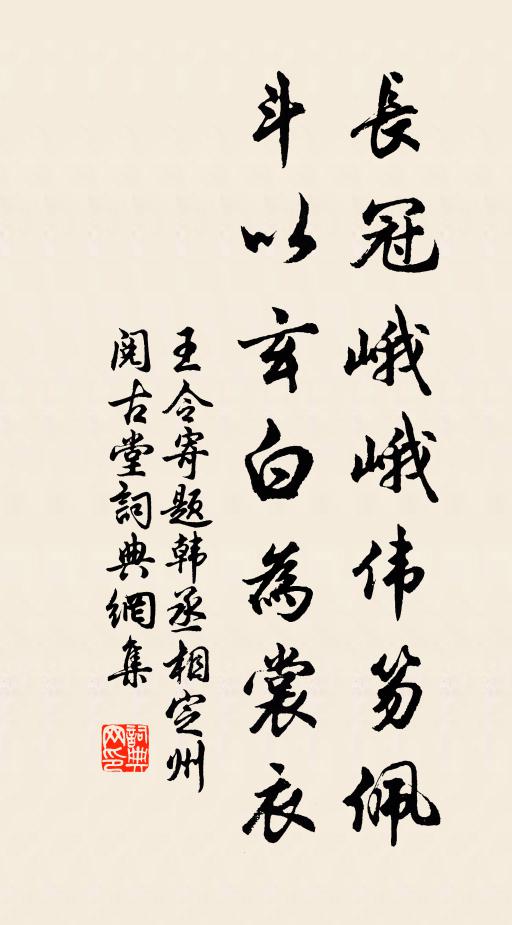 長冠峨峨伟笏佩
斗以玄白為裳衣
王令寄题韩丞相定州
阅古堂詞典網集
詞典网印